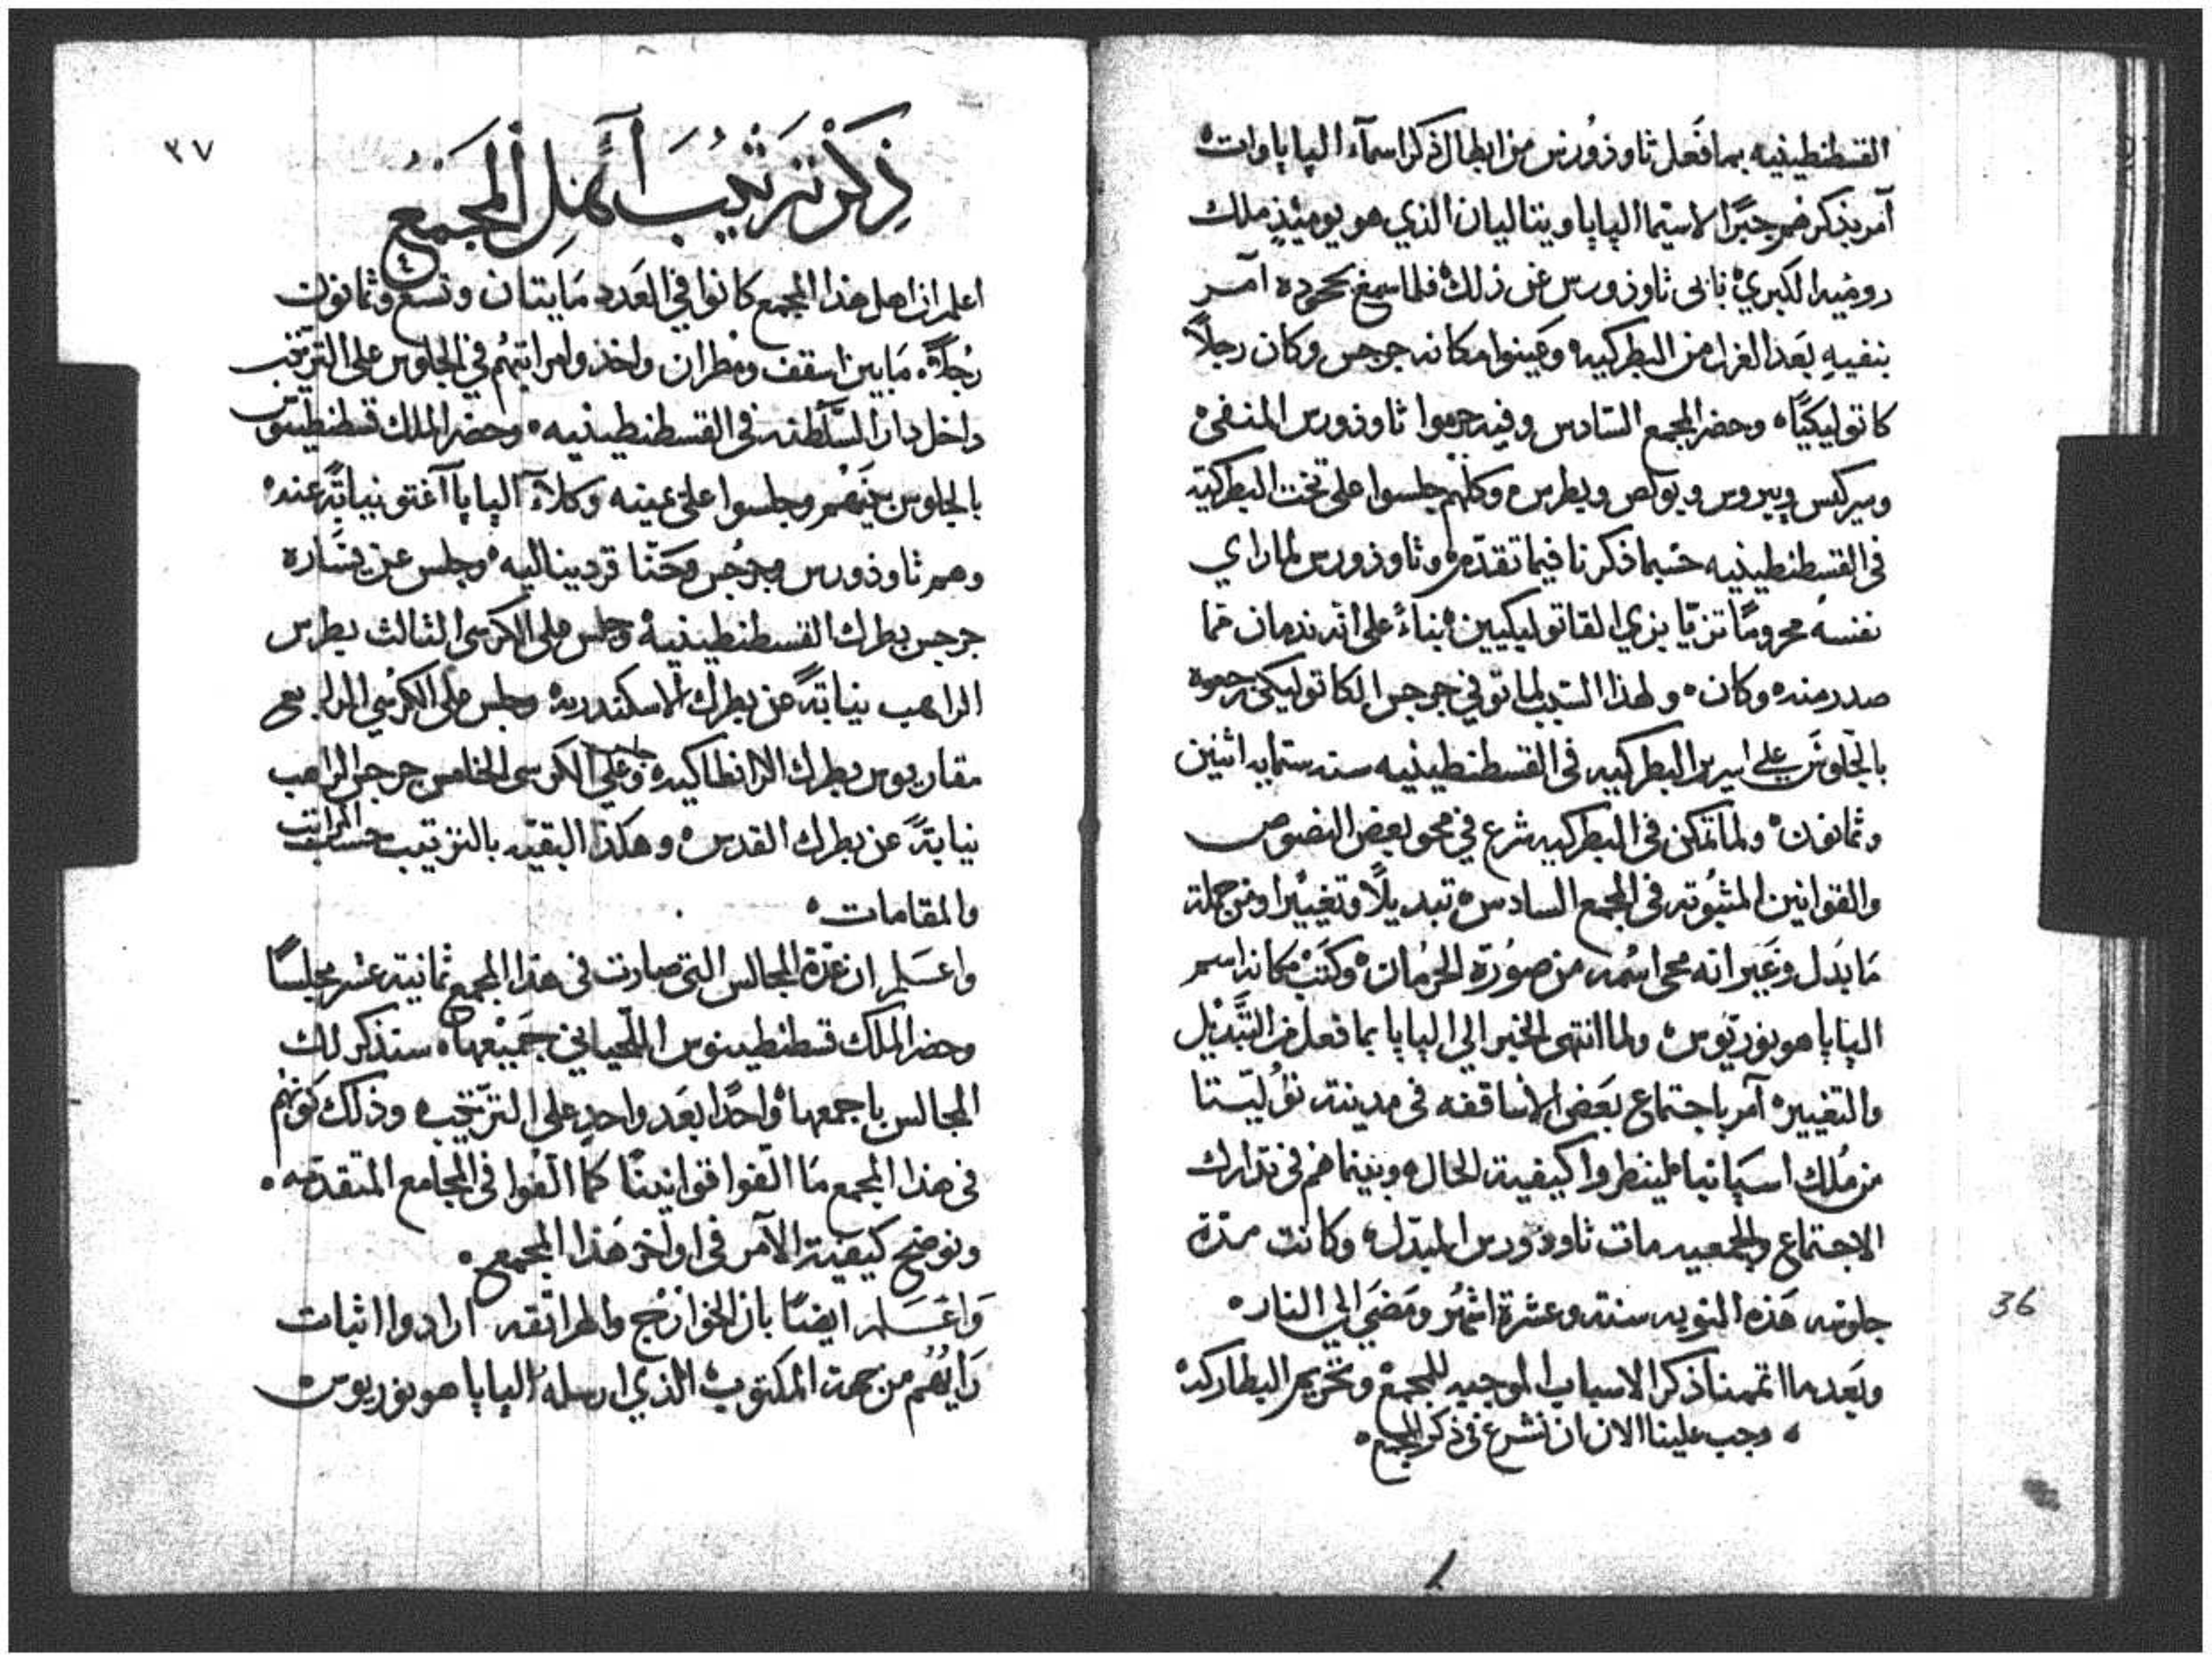 القسطنطينيه بما فعل ثاوذورس من ابطال ذكر اسمآء الپاپاوات
آمر بذكرهم جبرًا لاسيما الپاپا ويتاليان الذي هو يوميئذٍ ملك
روميه الكبري فابى ثاوذورس عن ذلك فلما سمع بجحوده آمر
بنفيهِ بعد العزل من البطركيه وعينوا مكانه جرجس وكان رجلاً
كاتوليكيًا وحضر المجمع السادس وفيه حرموا ثاوذورس المنفي
وسركيس وپيروس وبولص وبطرس وكلهم جلسوا على تخت البطركيه
في القسطنطينيه حسبما ذكرنا فيما تقدم وثاوذورس لما راي
نفسه محرومًا تزيّا بزي القاتوليكيين بناءً على انه ندمان مما
صدر منه وكان ولهذا السبب لما توفي جرجس الكاتوليكي رجعوه
بالجلوس على اسرير البطركيه في القسطنطينيه سنه ستمايه اثنين
وثمانون ولما تمكن في البطركيه شرع في محو بعض النصوص
والقوانين المثبوته في المجمع السادس تبديلاً وتغييرا ومن جملة
ما بدل وغير انه محى اسمه من صورة الحرمان وكتب مكانه اسم
الپاپا هونوريوس ولما انتهى الخبر الي الپاپا بما فعل من التبديل
والتغيير آمر باجتماع بعض الاساقفه في مدينة توليتتا
من ملك اسپانيا لينظروا كيفية الحال وبينما هم في تدارك
الاجتماع والجمعيه مات ثاوذورس المبدل وكانت مدة
جلوسه هذه النوبه سنة وعشرة اشهر ومضى الي النار
وبعد ما اتممنا ذكر الاسباب الموجبه للمجمع وتحريم البطاركه
وجب علينا الان ان نشرع في ذكر المجمع
36
٣٧
ذكر ترتيب آهل المجمع
اعلم ان اهل هذا المجمع كانوا في العدد مايتان وتسع وثمانون
رجلاً ما بين اسقف ومطران واخذوا مراتبهم في الجلوس على الترتيب
داخل دار السلطنه في القسطنطينيه وحضر الملك قسطنطينوس
بالجلوس بينهم وجلسوا على يمينه وكلآء الپاپا آغتو نيابةً عنه
وهم ثاوذورس وجرجس وحنا قردينالیه وجلس عن يساره
جرجس بطرك القسطنطينيه وجلس على الكرسي الثالث بطرس
الراهب نيابةً عن بطرك الاسكندريه وجلس على الكرسي الرابع
مقاريوس بطرك الانطاكيه وعلى الكرسي الخامس جرجس الراهب
نيابةً عن بطرك القدس وهكذا البقيه بالترتيب حسب المراتب
والمقامات
واعلم ان عدة المجالس التي صارت في هذا المجمع ثمانية عشر مجلسًا
وحضر الملك قسطنطينوس اللحياني جميعها سنذكر لك
المجالس باجمعها واحدًا بعد واحد على الترتيب وذلك كونهم
في هذا المجمع ما الفوا قوانينًا كما الفوا في المجامع المتقدمه
ونوضح كيفية الآمر في اواخر هذا المجمع
واعلم ايضًا بان الخوارج والهراتقه ارادوا اثبات
رايهم من جهة المكتوب الذي ارسله الپاپا هونوريوس